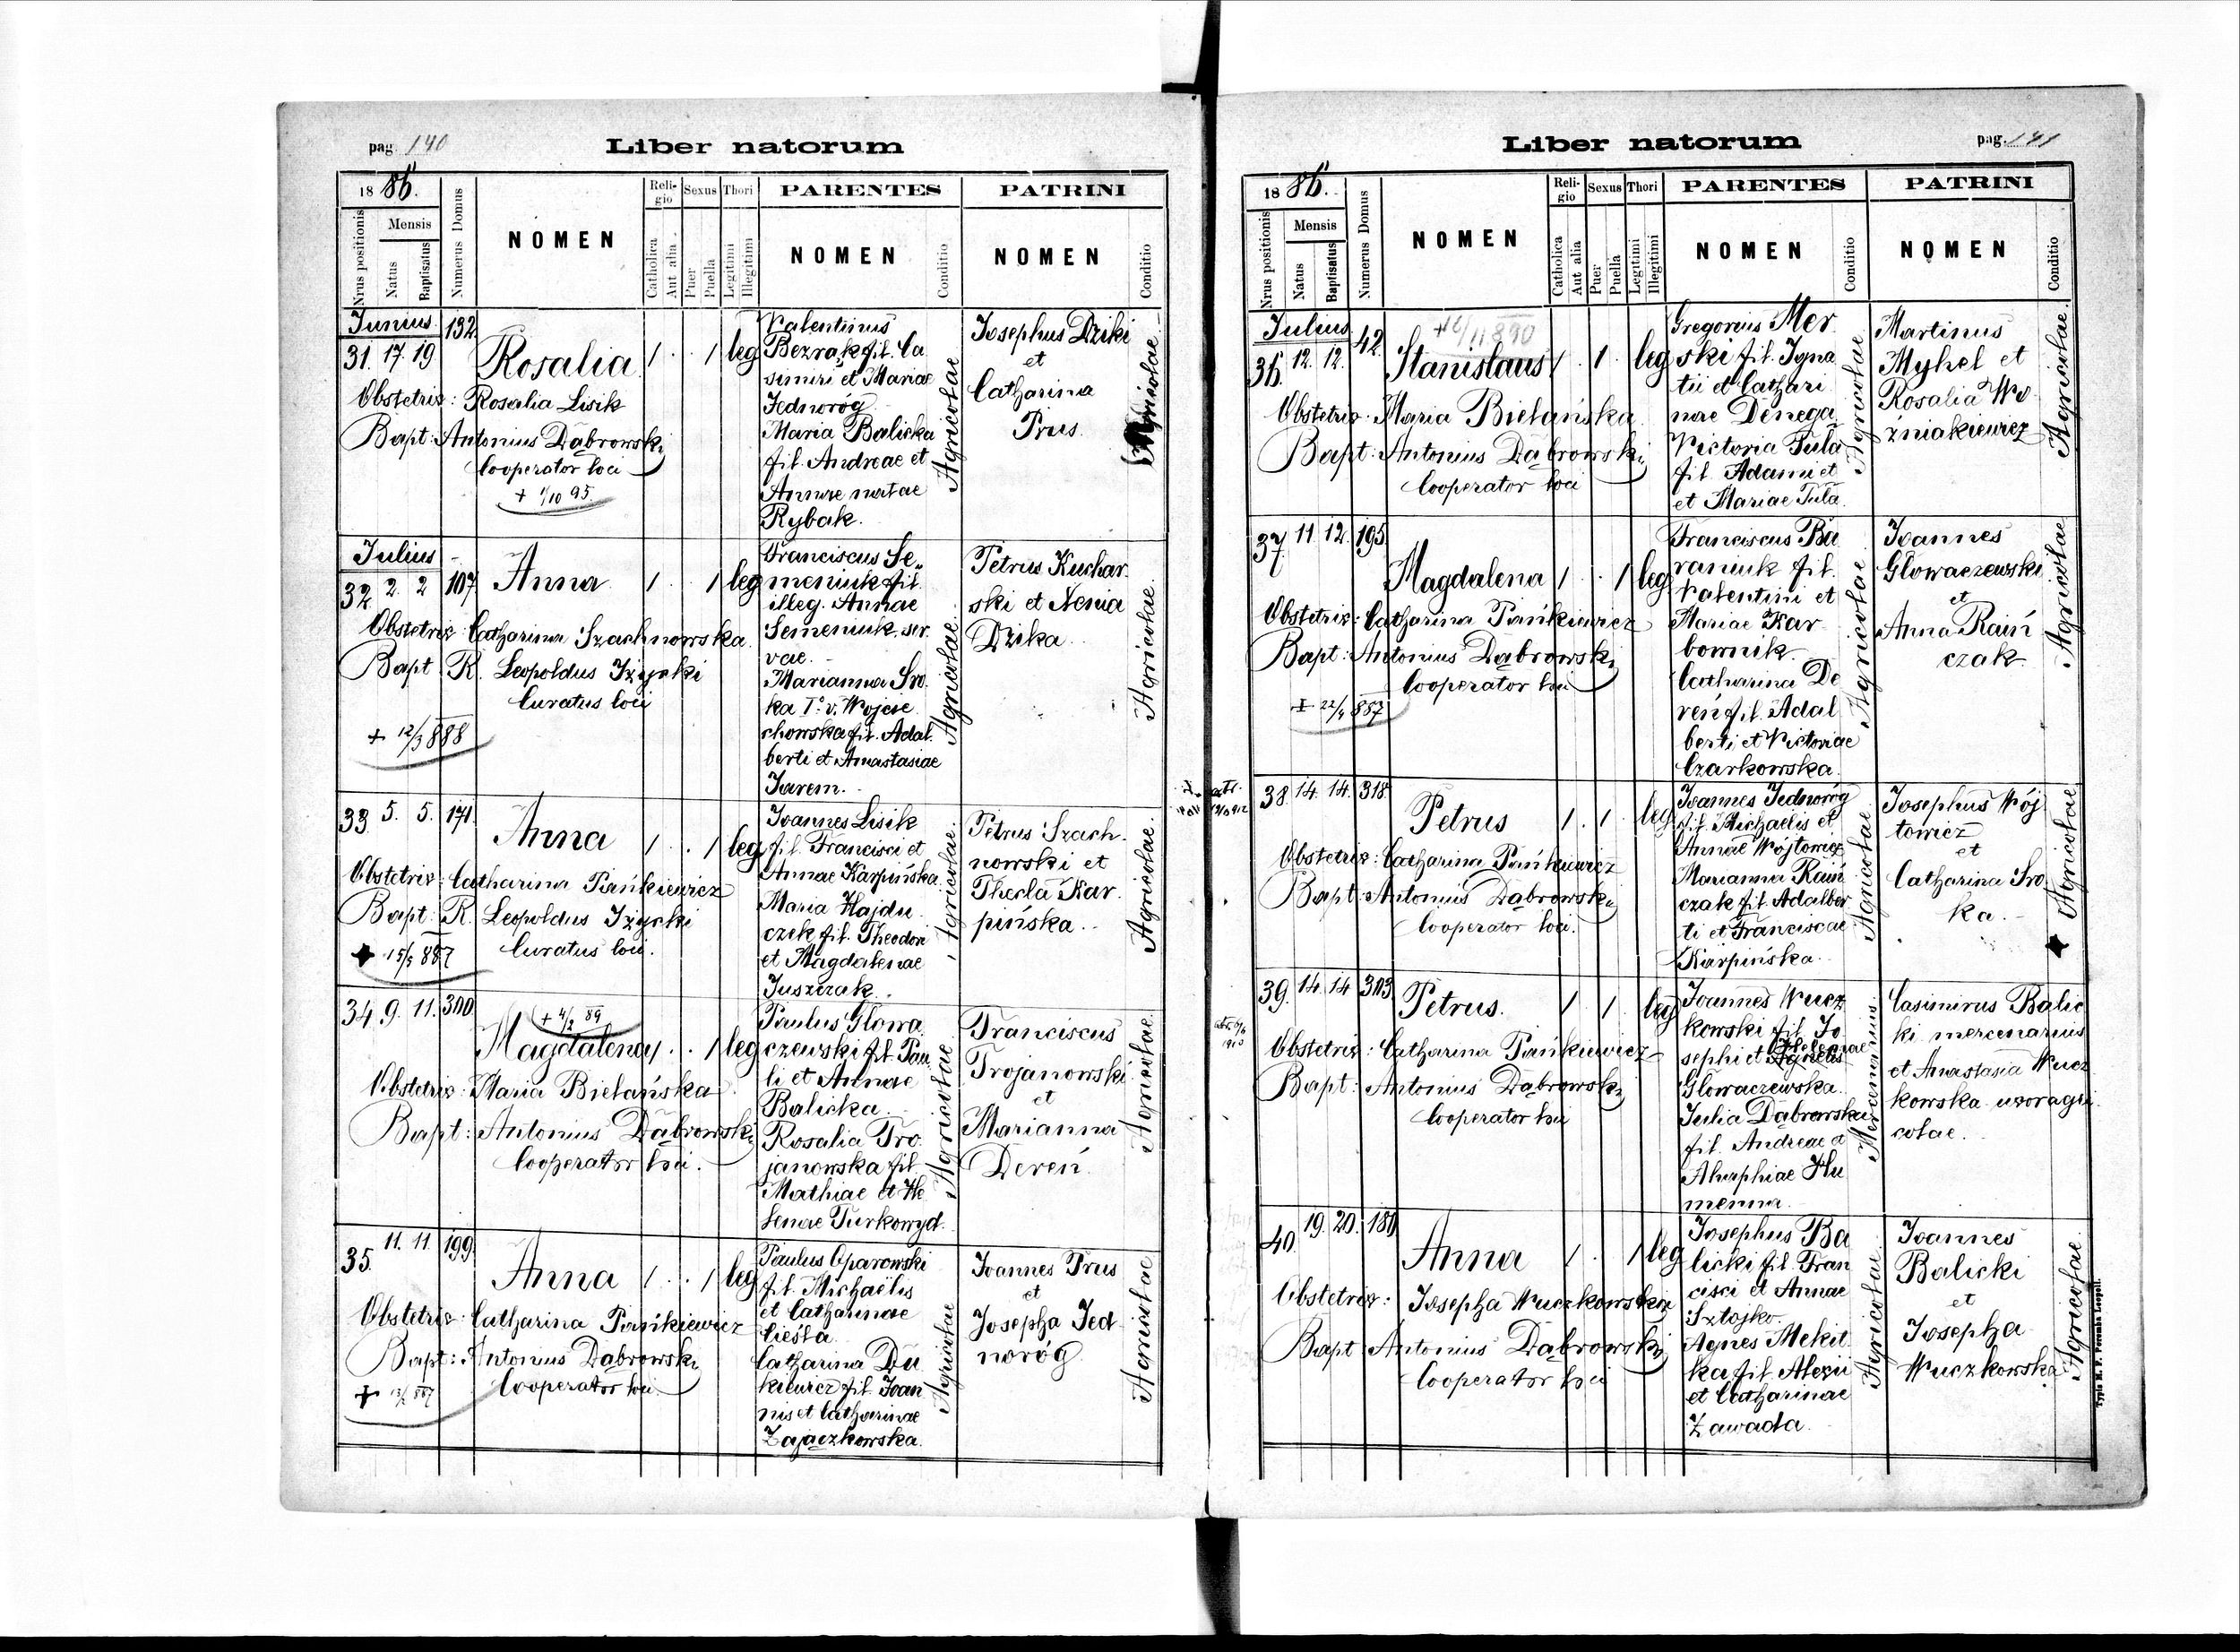 pag. 140
Liber natorum
1886.
Nrus positionis
Mensis
Natus
Baptisatus
Numerus Domus
NOMEN
Religio
Catholica
Aut alia
Sexus
Puer
Puella
Thori
Legitimi
Illegitimi
PARENTES
NOMEN
Conditio
PATRINI
NOMEN
Conditio
Junius
31. 17. 19 132
Rosalia 1 . . 1 leg
Obstetrix: Rosalia Lisik
Bapt: Antonius Dąbrowski
Cooperator loci
+ 1/10 95.
Valentinus
Bezrak fil. Ca
simiri et Mariae
Jednoróg
Maria Balicka
fil. Andreae et
Annae natae
Rybak.
Agricolae
Josephus Dziki
et
Catharina
Prus.
Agricolae
Julius
32. 2. 2 107
Anna 1 . . 1 leg
Obstetrix: Catharina Szachnowska
Bapt R. Leopoldus Iżycki
Curatus loci
+ 12/3 888
Franciscus Se„
meniuk fil.
illeg. Annae
Semeniuk ser
vae.
Marianna Sro
ka 1o v. Wojcie
chowska fil. Adal
berti et Anastasiae
Jarem.
Agricolae
Petrus Kuchar
ski et Xenia
Dzika
Agricolae.
33. 5. 5. 171.
Anna 1 . . 1 leg
Obstetrix: Catharina Pańkiewicz
Bapt: R. Leopoldus Iżycki
Curatus loci.
15/5 887
Joannes Lisik
fil. Francisci et
Annae Karpińska
Maria Hajdu
czek fil. Theodori
et Magdalenae
Juszczak.
Agricolae
Petrus Szach
nowski et
Thecla Kar
pińska.
Agricolae.
34. 9. 11. 300.
+ 4/2 89
Magdalena 1 . . 1 leg
Obstetrix: Maria Bielańska
Bapt: Antonius Dąbrowski
Cooperator loci.
Paulus Głowa
czewski fil. Pau
li et Annae
Balicka.
Rosalia Tro
janowska fil.
Mathiae et He
lenae Turkowyd.
Agricolae
Franciscus
Trojanowski
et
Marianna
Dereń.
Agricolae
35. 11. 11. 199.
Anna 1 . . 1 leg
Obstetrix: Catharina Pańkiewicz
Bapt: Antonius Dąbrowski
Cooperator loci
Paulus Oparowski
fil. Michaëlis
et Catharinae
Cieśla
Catharina Du
kiewicz fil. Joan
nis et Catharinae
Zajączkowska.
Agricolae
Joannes Prus
et
Josepha Jed
noróg
Agricolae
Liber natorum
pag. 141
1886.
Nrus positionis
Mensis
Natus
Baptisatus
Numerus Domus
NOMEN
Religio
Catholica
Aut alia
Sexus
Puer
Puella
Thori
Legitimi
Illegitimi
PARENTES
NOMEN
Conditio
PATRINI
NOMEN
Conditio
Julius
36. 12. 12. 42.
+ 16/11 890
Stanislaus 1 . 1 . leg
Obstetrix: Maria Bielańska
Bapt: Antonius Dąbrowski
Cooperator loci
Gregorius Mer
ski fil. Igna
tii et Cathari
nae Denega
Victoria Tula
fil. Adami et
et Mariae Tula.
Agricolae
Martinus
Myhel et
Rosalia Wo
źniakiewicz
Agricolae.
37. 11 12. 195
Magdalena 1 . . 1 leg
Obstetrix: Catharina Pańkiewicz
Bapt: Antonius Dąbrowski
Cooperator loci
22/4 887
Franciscus Ba
raniuk fil.
Valentini et
Mariae Kar
bownik.
Catharina De
reń fil. Adal
berti et Victoriae
Czarkowska.
Agricolae
Joannes
Głowaczewski
et
Anna Raiń
czak
Agricolae
38. 14. 14. 318
Petrus 1 . 1 . leg
Obstetrix: Catharina Pańkiewicz
Bapt: Antonius Dąbrowski
Cooperator loci.
Joannes Jednoróg
fil. Michaelis et
Annae Wójtowicz
Marianna Raiń
czak fil. Adalber
ti et Franciscae
Karpińska.
Agricolae
Josephus Wój
towicz
et
Catharina Sro
ka.
Agricolae
39. 14. 14 303
Petrus. 1 1 . leg
Obstetrix: Catharina Pańkiewicz
Bapt: Antonius Dąbrowski
Cooperator loci
Joannes Wucz
kowski fil. Jo
Helenae
sephi et Agnetis
Głowaczewska.
Julia Dąbrowska
fil. Andreae et
Ahaphiae Hu
menna.
Mercenarius
Casimirus Balic
ki mercenarius
et Anastasia Wucz
kowska uxor agri
colae.
40. 19. 20. 180
Anna 1 . 1 leg
Obstetrix: Josepha Wuczkowska
Bapt: Antonius Dąbrowski
Cooperator loci
Josephus Ba
licki fil. Fran
cisci et Annae
Sztojko.
Agnes Mekit
ka fil. Alexii
et Catharinae
Zawada.
Agricolae
Joannes
Balicki
et
Josepha
Wuczkowska
Agricolae.
Typis M. F. Poremba Leopoli.